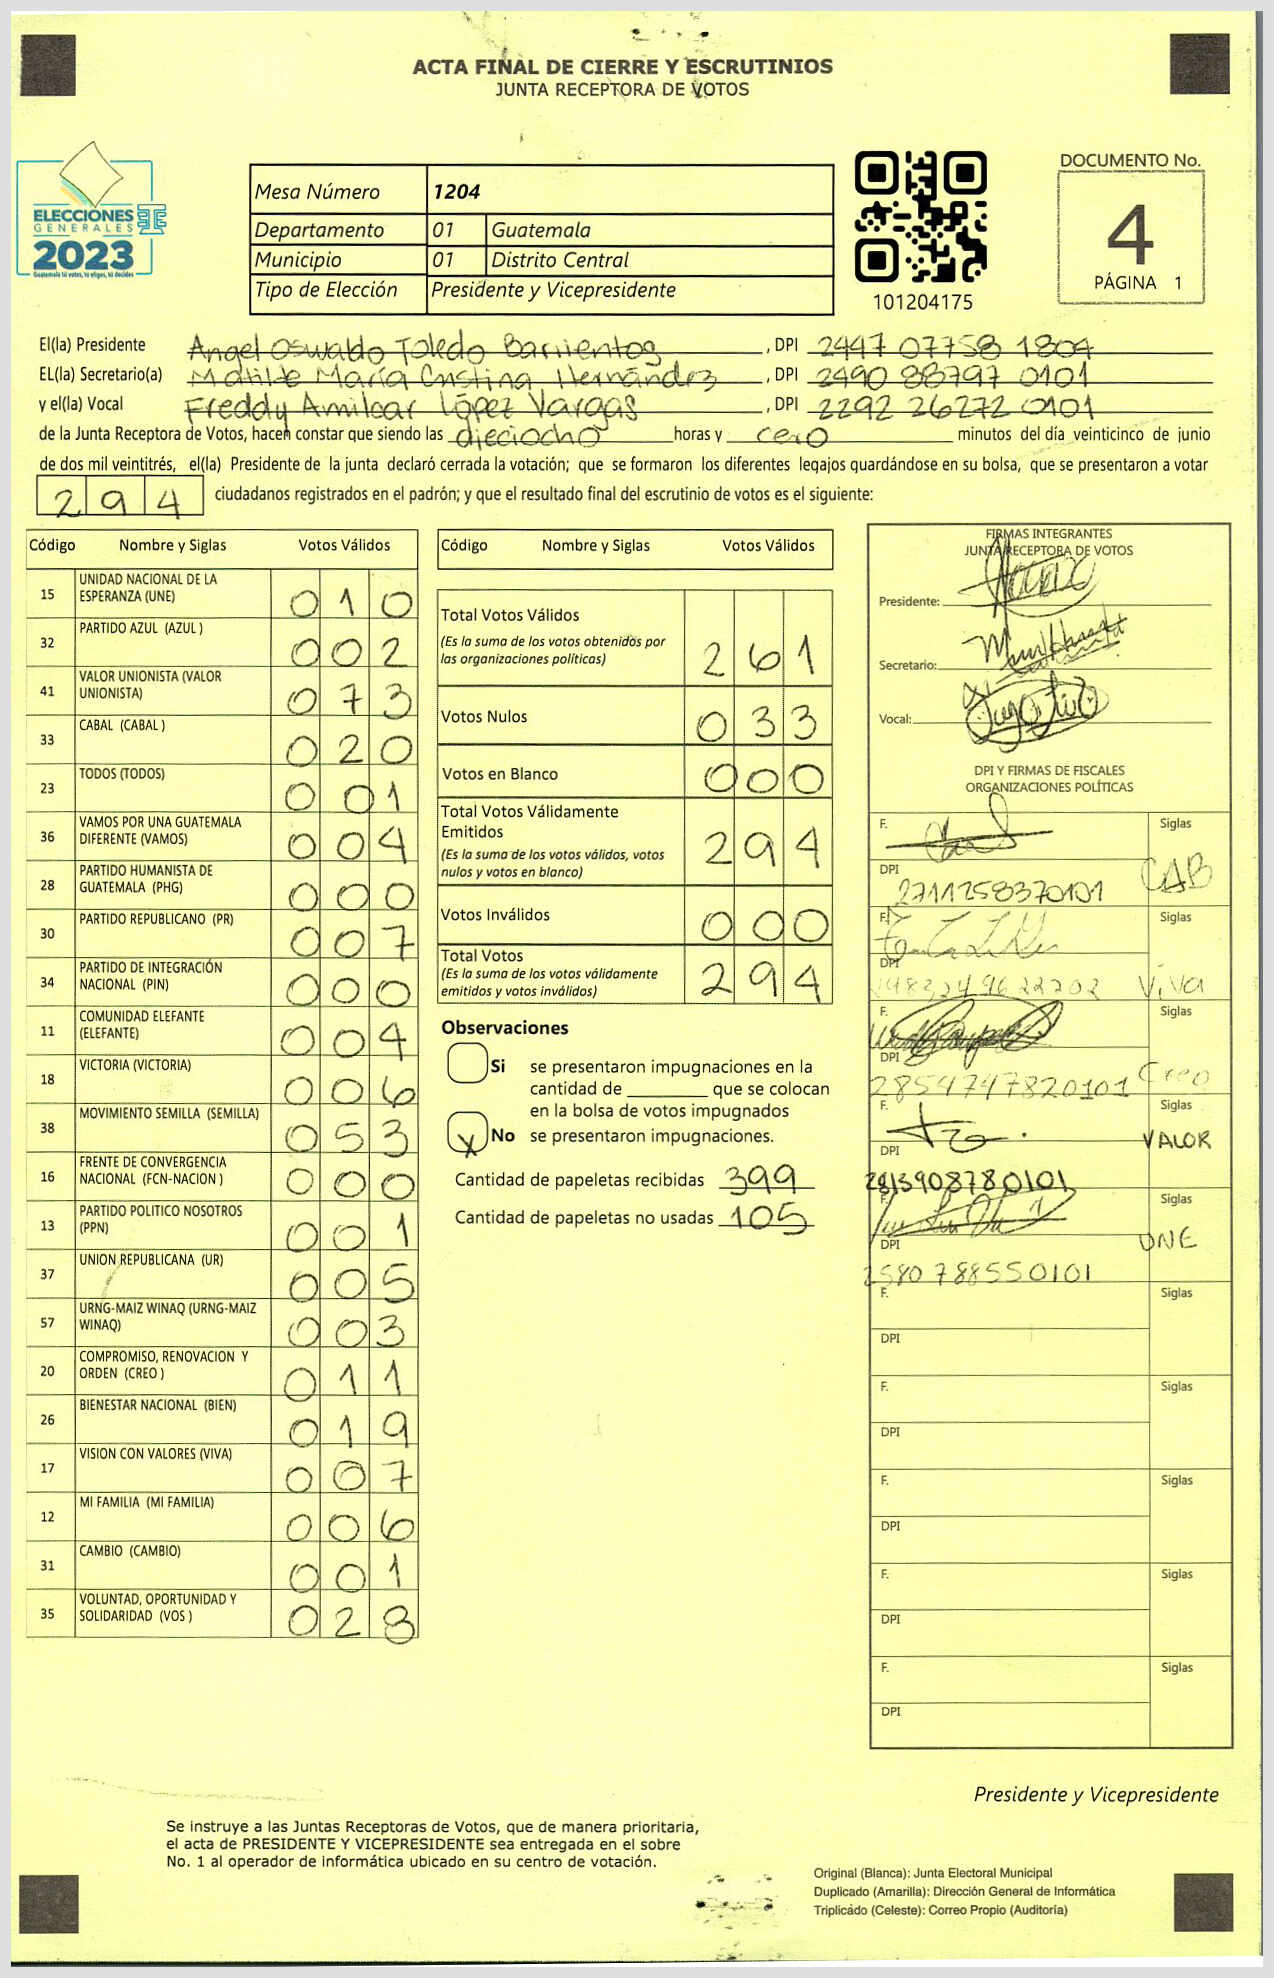 ACTA FINAL DE CIERRE Y ESCRUTINIOS
JUNTA RECEPTORA DE VOTOS
ELECCIONES
GENERALES
2023
Guatemala tú votas, tú eliges, tú decides
Mesa Número 1204
Departamento 01 Guatemala
Municipio 01 Distrito Central
Tipo de Elección Presidente y Vicepresidente
101204175
DOCUMENTO No.
4
PÁGINA 1
El(la) Presidente Angel Oswaldo Toledo Barrientos, DPI 2447 07758 1804
EL(la) Secretario(a) Matilde María Cristina Hernández, DPI 2490 88797 0101
y el(la) Vocal Freddy Amilcar López Vargas, DPI 2292 26272 0101
de la Junta Receptora de Votos, hacen constar que siendo las dieciocho horas y cero minutos del día veinticinco de junio
de dos mil veintitrés, el(la) Presidente de la junta declaró cerrada la votación; que se formaron los diferentes legajos guardándose en su bolsa, que se presentaron a votar
294 ciudadanos registrados en el padrón; y que el resultado final del escrutinio de votos es el siguiente:
Código Nombre y Siglas Votos Válidos
15 UNIDAD NACIONAL DE LA ESPERANZA (UNE) 010
32 PARTIDO AZUL (AZUL ) 002
41 VALOR UNIONISTA (VALOR UNIONISTA) 073
33 CABAL (CABAL ) 020
23 TODOS (TODOS) 001
36 VAMOS POR UNA GUATEMALA DIFERENTE (VAMOS) 004
28 PARTIDO HUMANISTA DE GUATEMALA (PHG) 000
30 PARTIDO REPUBLICANO (PR) 007
34 PARTIDO DE INTEGRACIÓN NACIONAL (PIN) 000
11 COMUNIDAD ELEFANTE (ELEFANTE) 004
18 VICTORIA (VICTORIA) 006
38 MOVIMIENTO SEMILLA (SEMILLA) 053
16 FRENTE DE CONVERGENCIA NACIONAL (FCN-NACION ) 000
13 PARTIDO POLITICO NOSOTROS (PPN) 001
37 UNION REPUBLICANA (UR) 005
57 URNG-MAIZ WINAQ (URNG-MAIZ WINAQ) 003
20 COMPROMISO, RENOVACION Y ORDEN (CREO ) 011
26 BIENESTAR NACIONAL (BIEN) 019
17 VISION CON VALORES (VIVA) 007
12 MI FAMILIA (MI FAMILIA) 006
31 CAMBIO (CAMBIO) 001
35 VOLUNTAD, OPORTUNIDAD Y SOLIDARIDAD (VOS ) 028
Código Nombre y Siglas Votos Válidos
Total Votos Válidos 261
(Es la suma de los votos obtenidos por
las organizaciones políticas)
Votos Nulos 033
Votos en Blanco 000
Total Votos Válidamente
Emitidos 294
(Es la suma de los votos válidos, votos
nulos y votos en blanco)
Votos Inválidos 000
Total Votos 294
(Es la suma de los votos válidamente
emitidos y votos inválidos)
Observaciones
Si se presentaron impugnaciones en la
cantidad de ________ que se colocan
en la bolsa de votos impugnados
X No se presentaron impugnaciones.
Cantidad de papeletas recibidas 399
Cantidad de papeletas no usadas 105
FIRMAS INTEGRANTES
JUNTA RECEPTORA DE VOTOS
Presidente:
Secretario:
Vocal:
DPI Y FIRMAS DE FISCALES
ORGANIZACIONES POLÍTICAS
F. Siglas
DPI 2711258370101 CAB
F. Siglas
DPI Viva
F. Siglas
DPI 2854747820101 Creo
F. Siglas
DPI VALOR
2813908780101
F. Siglas
DPI UNE
2580 788550101
F. Siglas
DPI
F. Siglas
DPI
F. Siglas
DPI
F. Siglas
DPI
F. Siglas
DPI
Presidente y Vicepresidente
Se instruye a las Juntas Receptoras de Votos, que de manera prioritaria,
el acta de PRESIDENTE Y VICEPRESIDENTE sea entregada en el sobre
No. 1 al operador de informática ubicado en su centro de votación.
Original (Blanca): Junta Electoral Municipal
Duplicado (Amarilla): Dirección General de Informática
Triplicado (Celeste): Correo Propio (Auditoría)